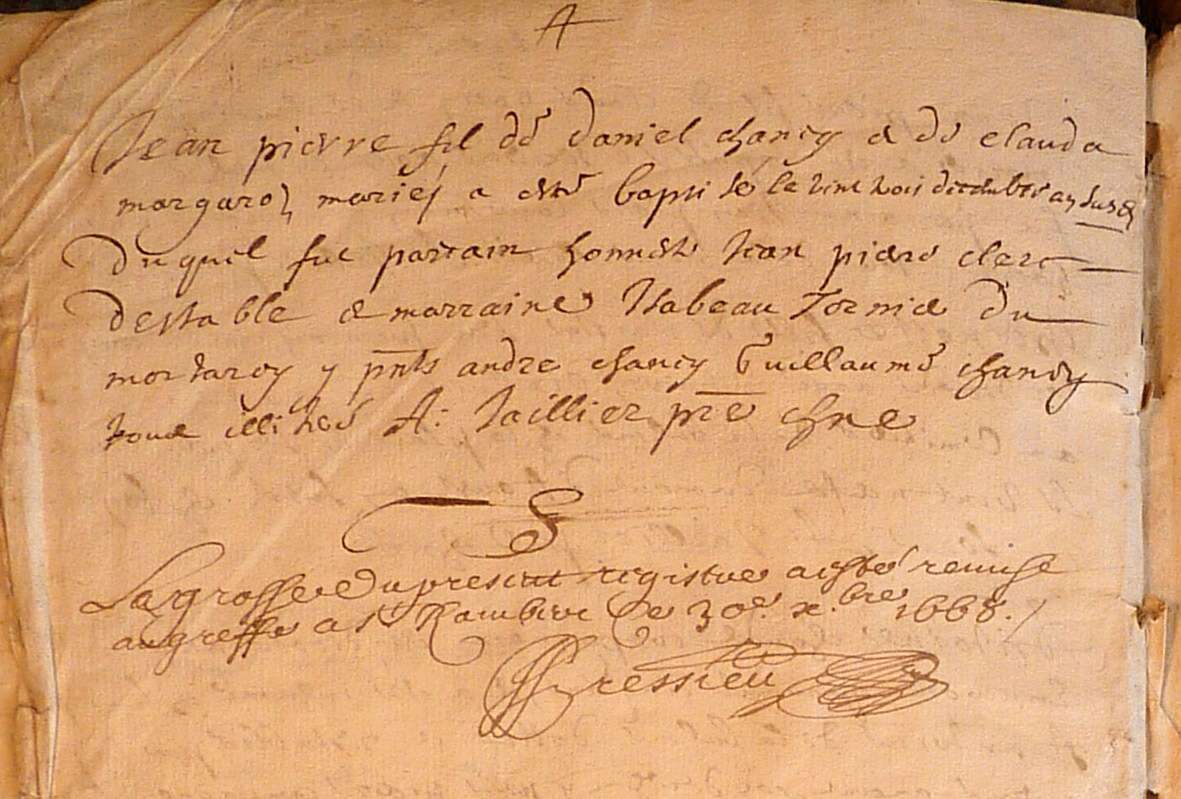 A
Jean pierre fil de daniel chancy & de clauda
margaron mariés a esté baptisé le vint trois decembre an susd
Duquel fut parrain honneste Jean piere clerc
destable & marraine Isabeau Tornier du
mortarey y pnts andre chancy Guillaume chancy
tous illiterés A: Taillier pre
La grosse du present registre a esté remise
au greffe a st Rambert ce 30e. xbre 1668.
Gressieu